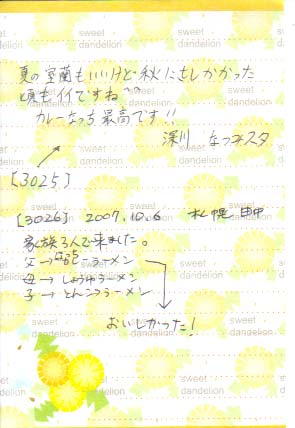 sweet dandelion
夏の室蘭もいいけど秋にさしかかった
頃もイイですね〜
カレーなっち最高です!!
深川 なつみスタ
[3025]
[3026] 2007.10.6 札幌 田中
家族3人で来ました。
父→ ラーメン
母→しょうゆラーメン
子→とんこつラーメン
おいしかった!